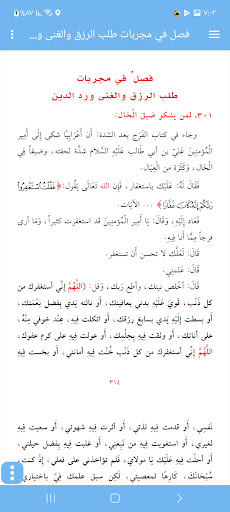 ٧:٠٣
٨٧٪
فصل في مجربات طلب الرزق والغنى و...
فصلٌ في مجربات
طلب الرزق والغنى ورد الدين
٣٠١. لمن يشكو ضيق الْحَال:
وجاء في كتاب الفَرَج بعد الشدة: أن أَعْرَابِيًّا شكى إلَى أَمِير
الْمُؤْمِنِينَ عَلِيّ بن أبِي طالب عَلَيْهِ السلام شدَّةً لحقته، وضيقاً فِي
الْحَال، وكثرة من العِيَال.
فَقَالَ لَهُ: عَلَيْك باستغفار، فَإِن الله تَعَالَى يَقُول: ﴿فَقُلْتُ اسْتَغْفِرُوا
رَبَّكُمْ إِنَّهُ كَانَ غَفَّارًا﴾ ... الْآيَات.
فَعَاد إِلَيْهِ، وَقَالَ: يَا أَمِير الْمُؤمنِينَ قد استغفرت كثيراً، وَمَا أرى
فرجاً مِمَّا أَنا فِيهِ.
قَالَ: لَعَلَّك لا تحسن أَن تستغفر.
قَالَ: عَلمنِي.
قَالَ: أخْلص نيتك، وأطع رَبك، وَقل: (اللَّهُمَّ إِنِّي أستغفرك من
كل ذَنْب، قوي عَلَيْهِ بدنِي بعافيتك، أَو نالته يَدي بِفضل نِعْمَتك،
أَو بسطت إِلَيْهِ يَدي بسابغ رزقك، أَو اتكلت فِيهِ، عِنْد خوفي مِنْهُ،
على أناتك، أَو وثقت فِيهِ بحلمك، أَو عولت فِيهِ على كرم عفوك،
اللَّهُمَّ إِنِّي أستغفرك من كل ذَنْب خُنْت فِيهِ أمانتي، أَو بخست فِيهِ
٣١٤
نَفسِي، أَو قدمت فِيهِ لذتي، أَو آثرت فِيهِ شهوتي، أَو سعيت فِيهِ
لغيري، أَو استغويت فِيهِ من تَبِعنِي، أَو غلبت فِيهِ بِفضل حيلتي،
أَو أحلت فِيهِ عَلَيْك يَا مولاي، فَلم تؤاخذني على فعلي، إِذْ كنت،
سُبْحَانَكَ، كَارِهًا لمعصيتي، لَكِن سبق علمك فِيَّ باختياري،